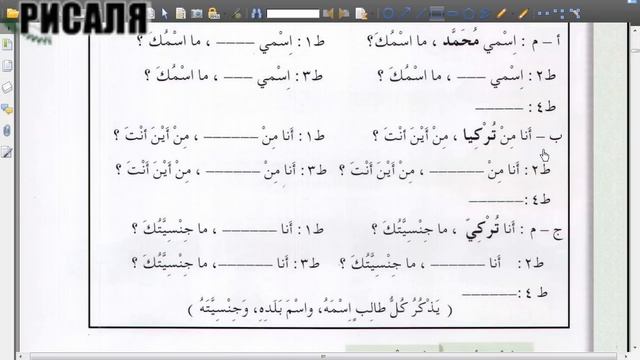 РИСАЛЯ
أ – م : اِسْمي مُحَمَّد ، ما اسْمُكَ؟ ط١ : اِسْمي ــــــ ، ما اسْمُكَ ؟
ط٢: اِسْمي ـــــ ، ما اسْمُكَ ؟ ط٣: اِسْمي ـــــ ، ما اسْمُكَ ؟
ط٤: ــــــــ
ب – أنا مِنْ تُرْكِيا ، مِنْ أَيْنَ أنْتَ ؟ ط١: أنا مِنْ ــــــــ ، مِنْ أيْنَ أنْتَ ؟
ط٢: أنا مِنْ ــــــــ ، مِنْ أَيْنَ أنْتَ ؟ ط٣: أنا مِنْ ــــــــ ، مِنْ أَيْنَ أنْتَ ؟
ط٤: ــــــــ
ج – م : أنا تُرْكِيّ ، ما جِنْسِيَّتُكَ ؟ ط١: أنا ــــــــ ، ما جِنْسِيَّتُكَ ؟
ط٢: أنا ــــــــ ، ما جِنْسِيَّتُكَ ؟ ط٣: أنا ــــــــ، ما جِنْسِيَّتُكَ ؟
ط ٤: ــــــــ
( يَذْكُرُ كُلُّ طالِبٍ اِسْمَهُ، واسْمَ بَلَدِهِ، وَجِنْسِيَّتَهُ )